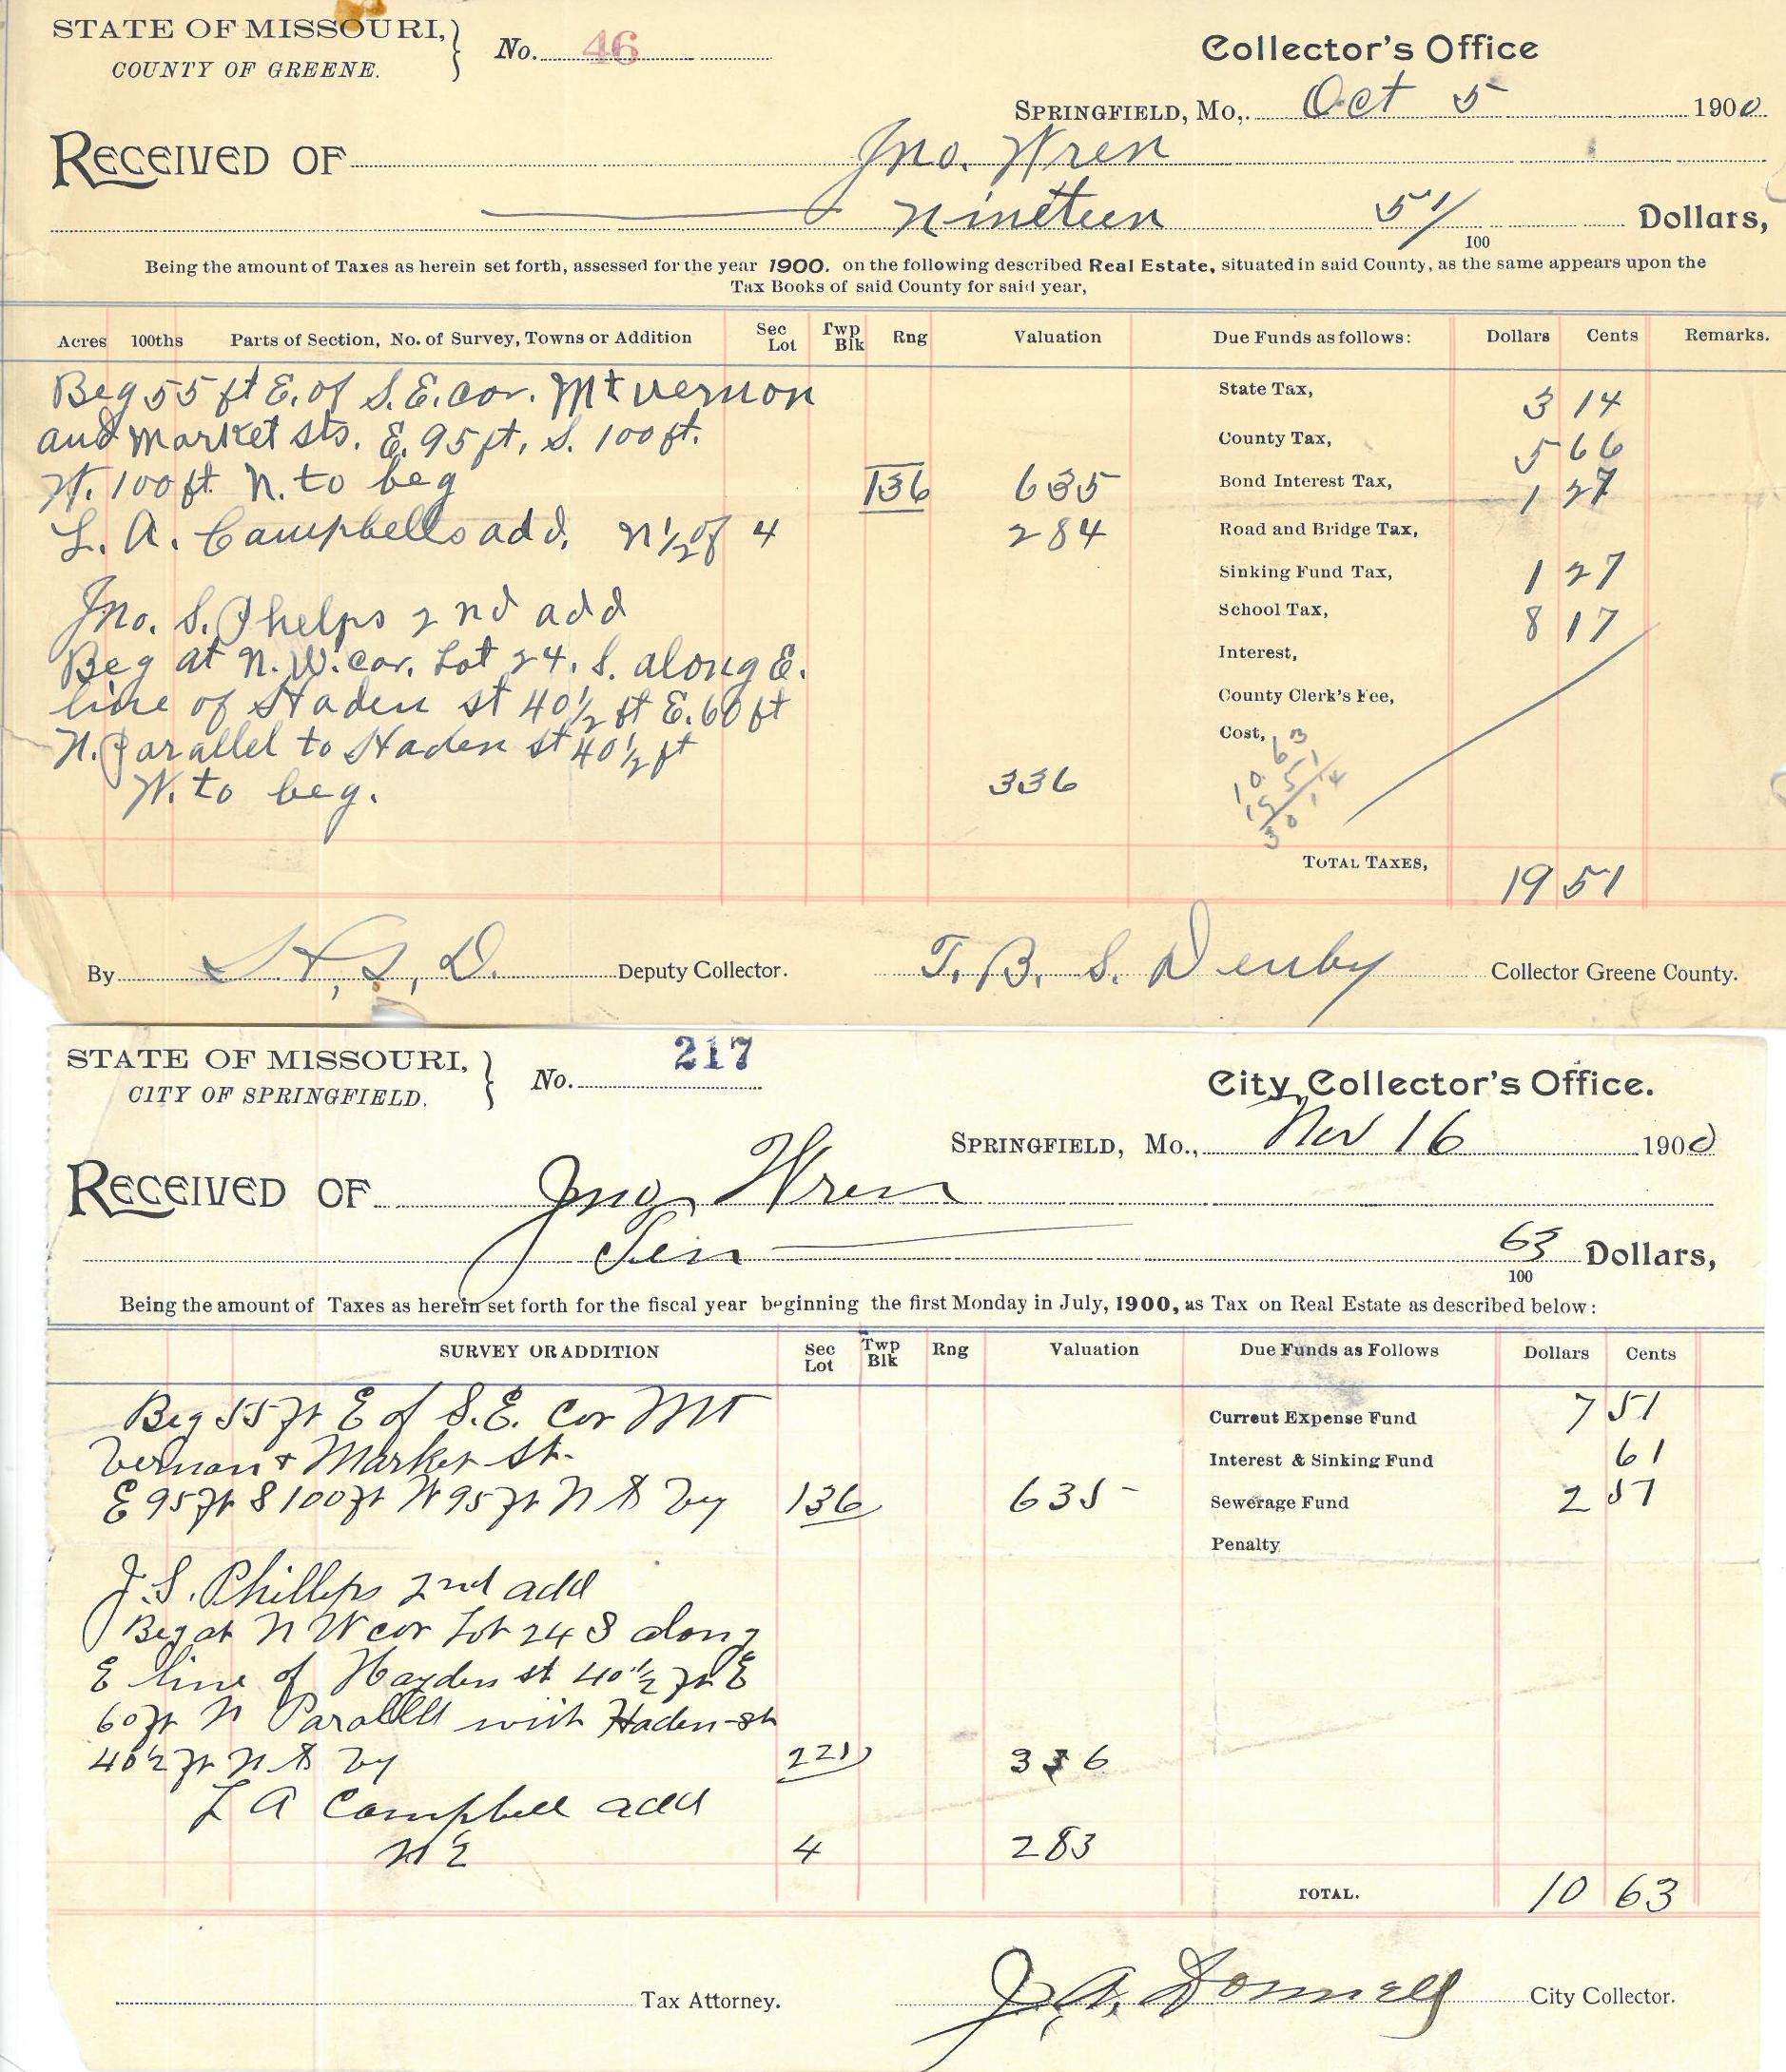 STATE OF MISSOURI, } No. 46 Collector's Office
COUNTY OF GREENE.
SPRINGFIELD, Mo,. Oct 5 1900
RECEIVED OF Jno. Wren
Nineteen 51/100 Dollars,
Being the amount of Taxes as herein set forth, assessed for the year 1900. on the following described Real Estate, situated in said County, as the same appears upon the
Tax Books of said County for said year,
Acres 100ths Parts of Section, No. of Survey, Towns or Addition Sec Lot Twp Blk Rng Valuation Due Funds as follows: Dollars Cents Remarks.
Beg 55 ft E. of S.E. cor. Mt vernon State Tax, 3 14
and Market sts. E. 95 ft. S. 100 ft. County Tax, 5 66
W. 100 ft N. to beg 136 635 Bond Interest Tax, 1 27
L. A. Campbells add. N 1/2 of 4 284 Road and Bridge Tax,
Sinking Fund Tax, 1 27
Jno. S. Phelps 2nd add School Tax, 8 17
Beg at N. W. cor. Lot 24. S. along E. Interest,
line of Haden st 40 1/2 ft E. 60 ft County Clerk's Fee,
N. Parallel to Haden st 40 1/2 ft Cost,
W. to beg. 336
10 63
19 51
30 14
TOTAL TAXES, 19 51
By H. S. D. Deputy Collector. T. B. S. Denby Collector Greene County.
STATE OF MISSOURI, } No. 217 City Collector's Office.
CITY OF SPRINGFIELD.
SPRINGFIELD, Mo., Nov 16 1900
RECEIVED OF Jno. Wren
Ten 63/100 Dollars,
Being the amount of Taxes as herein set forth for the fiscal year beginning the first Monday in July, 1900, as Tax on Real Estate as described below:
SURVEY OR ADDITION Sec Lot Twp Blk Rng Valuation Due Funds as Follows Dollars Cents
Beg 55 ft E of S.E. cor Mt Current Expense Fund 7 51
Vernon + Market St. Interest & Sinking Fund 61
E 95 ft S 100 ft W 95 ft N to beg 136 635 Sewerage Fund 2 51
Penalty
J. S. Phillips 2nd add
Beg at N W cor Lot 24 S along
E line of Hayden st 40 1/2 ft E
60 ft N Parallel with Haden st
40 1/2 ft N to beg 221 336
L A Campbell add
N E 4 283
TOTAL. 10 63
Tax Attorney. J. A. Donnell City Collector.